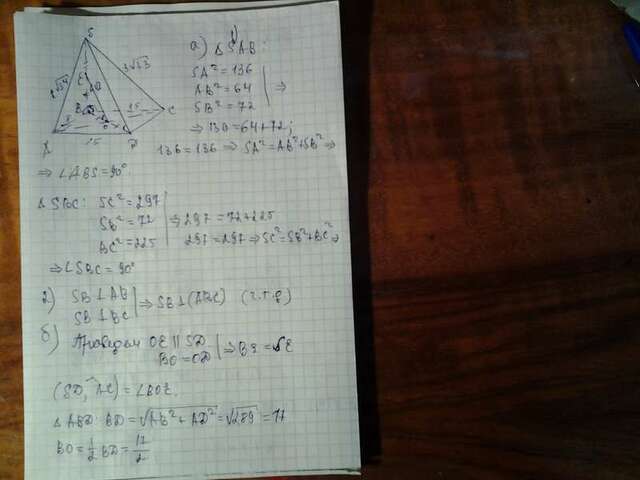 S
3√33
2√34
E
B
15
C
8
O
A
15
D
а) 1) △SAB:
SA² = 136
AB² = 64 ⇒
SB² = 72
⇒ 136 = 64 + 72;
136 = 136 ⇒ SA² = AB² + SB² ⇒
⇒ ∠ABS = 90°
△SBC: SC² = 297
SB² = 72 ⇒ 297 = 72 + 225
BC² = 225 297 = 297 ⇒ SC² = SB² + BC² ⇒
⇒ ∠SBC = 90°
2) SB ⊥ AB
SB ⊥ BC ⇒ SB ⊥ (ABC) (ч.т.д)
б) Проведём OE || SD
BO = OD ⇒ BE = SE
(SD, AC) = ∠BOE.
△ABD: BD = √AB² + AD² = √289 = 17
BO = 1/2 BD = 17/2